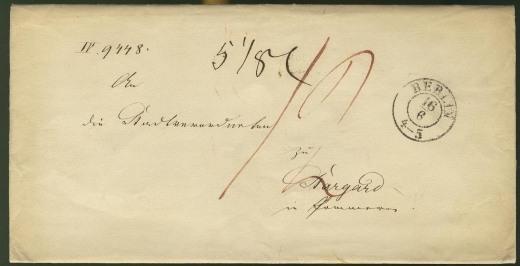 N. 9448.
5 1/8
An
die Stadtverordneten
zu
Stargard
in Pommern.
BERLIN
16
6
4-5